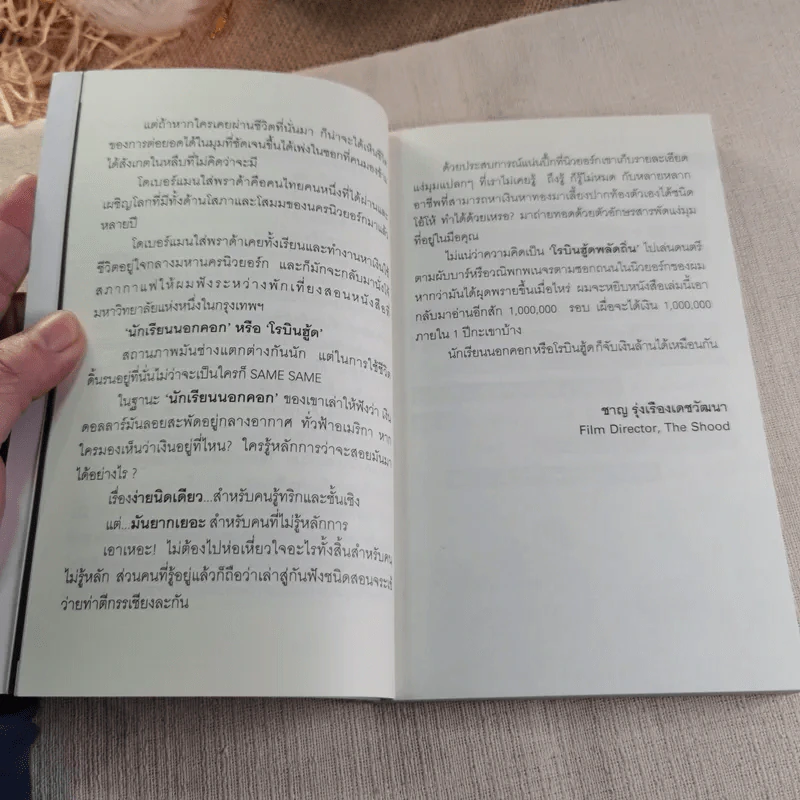 แต่ถ้าหากใครเคยผ่านชีวิตที่นั่นมา ก็น่าจะได้เห็นชีวิต
ของการต่อยอดได้ในมุมที่ชัดเจนขึ้นได้เพ่งในซอกที่คนมองข้าม
ได้สังเกตในหลืบที่ไม่คิดว่าจะมี
โดเบอร์แมนใส่พราด้าคือคนไทยคนหนึ่งที่ได้ผ่านและ
เผชิญโลกที่มีทั้งด้านโสภาและโสมมของนครนิวยอร์กมาแล้ว
หลายปี
โดเบอร์แมนใส่พราด้าเคยทั้งเรียนและทำงานหาเงินใช้
ชีวิตอยู่ใจกลางมหานครนิวยอร์ก และก็มักจะกลับมานั่งใช้
สภากาแฟให้ผมฟังระหว่างพักเที่ยงสอนหนังสือที่
มหาวิทยาลัยแห่งหนึ่งในกรุงเทพฯ
'นักเรียนนอกคอก' หรือ 'โรบินฮู้ด'
สถานภาพมันช่างแตกต่างกันนัก แต่ในการใช้ชีวิต
ดิ้นรนอยู่ที่นั่นไม่ว่าจะเป็นใครก็ SAME SAME
ในฐานะ 'นักเรียนนอกคอก' ของเขาเล่าให้ฟังว่า เงิน
ดอลลาร์มันลอยสะพัดอยู่กลางอากาศ ทั่วฟ้าอเมริกา หาก
ใครมองเห็นว่าเงินอยู่ที่ไหน? ใครรู้หลักการว่าจะสอยมันมา
ได้อย่างไร ?
เรื่องง่ายนิดเดียว...สำหรับคนรู้ทริกและชั้นเชิง
แต่...มันยากเยอะ สำหรับคนที่ไม่รู้หลักการ
เอาเหอะ! ไม่ต้องไปห่อเหี่ยวใจอะไรทั้งสิ้นสำหรับคน
ไม่รู้หลัก ส่วนคนที่รู้อยู่แล้วก็ถือว่าเล่าสู่กันฟังชนิดสอนจระเข้
ว่ายท่าตีกรรเชียงละกัน
ด้วยประสบการณ์แน่นปึ้กที่นิวยอร์กเขาเก็บรายละเอียด
แง่มุมแปลกๆ ที่เราไม่เคยรู้ ถึงรู้ ก็รู้ไม่หมด กับหลายหลาก
อาชีพที่สามารถหาเงินหาทองมาเลี้ยงปากท้องตัวเองได้ชนิด
โอ้โห้ ทำได้ด้วยเหรอ? มาถ่ายทอดด้วยตัวอักษรสารพัดแง่มุม
ที่อยู่ในมือคุณ
ไม่แน่ว่าความคิดเป็น 'โรบินฮู้ดพลัดถิ่น' ไปเล่นดนตรี
ตามผับบาร์หรือวณิพกพเนจรตามซอกถนนในนิวยอร์กของผม
หากว่ามันได้ผุดพรายขึ้นเมื่อไหร่ ผมจะหยิบหนังสือเล่มนี้เอา
กลับมาอ่านอีกสัก 1,000,000 รอบ เผื่อจะได้เงิน 1,000,000
ภายใน 1 ปีกะเขาบ้าง
นักเรียนนอกคอก หรือโรบินฮู้ด ก็จับเงินล้านได้เหมือนกัน
ชาญ รุ่งเรืองเดชวัฒนา
Film Director, The Shood